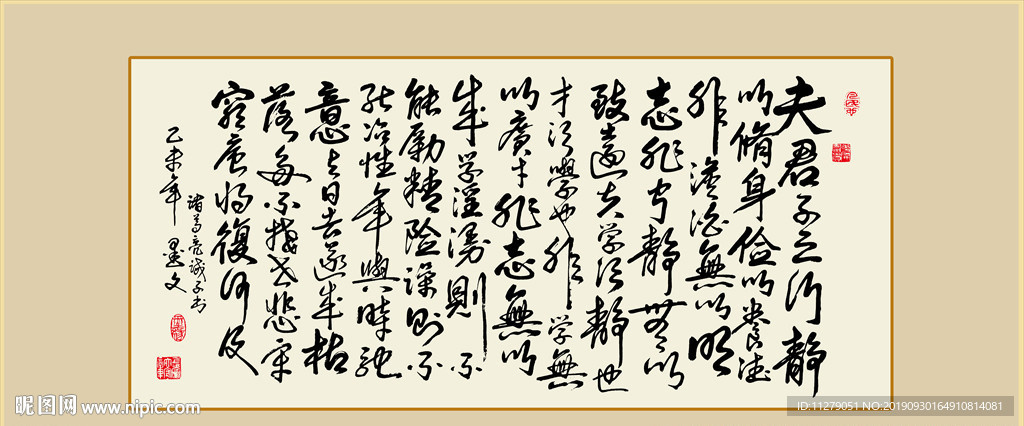 夫君子之行静
以脩身儉以養德
非澹泊無以明
志非宁静無以
致遠夫学须静也
才须學也非学無
以廣才非志無以
成学淫漫則不
能勵精险躁則不
能冶性年與時馳
意与日去遂成枯
落多不接世悲守
窮廬将復何及
諸葛亮诫子书
乙未年 墨文
昵图网 www.nipic.com
ID:11279051 NO:20190930164910814081